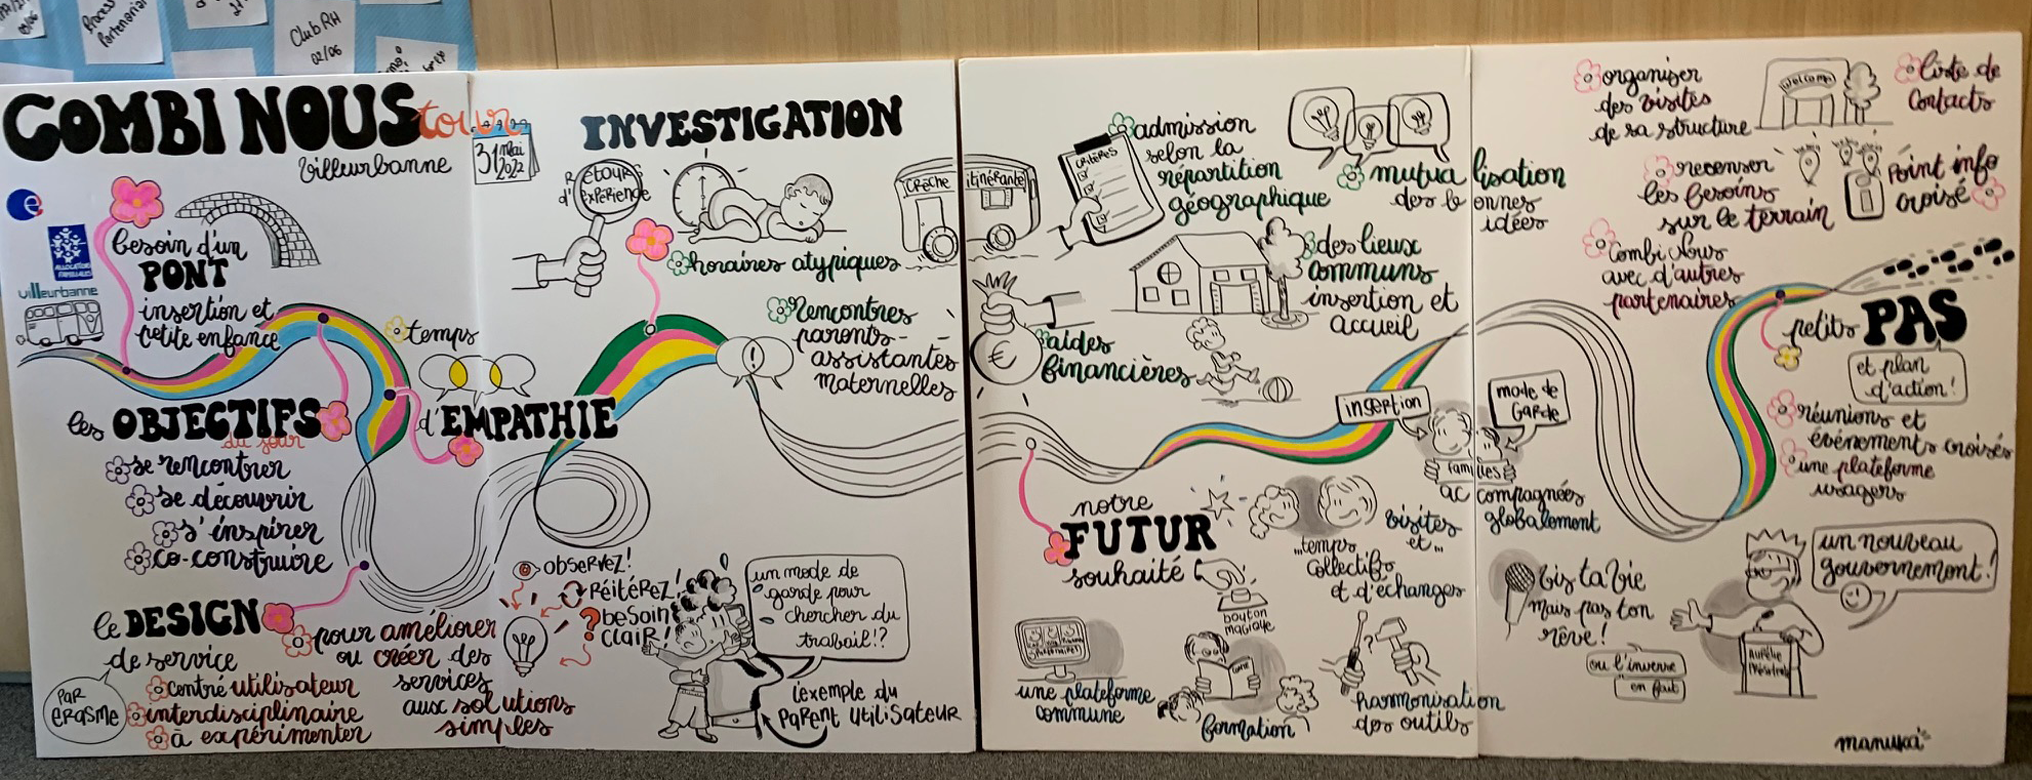 Process
Partenarial
Club RH
02/06
COMBI NOUS tour
villeurbanne
31 mai
2022
ALLOCATIONS
FAMILIALES
villeurbanne
besoin d'un
PONT
insertion et
petite enfance
temps
d'EMPATHIE
les OBJECTIFS
du jour
se rencontrer
se découvrir
s'inspirer
co-construire
le DESIGN
de service
PAR
ERASME
centré utilisateur
interdisciplinaire
à expérimenter
pour améliorer
ou créer des
services
aux solutions
simples
INVESTIGATION
RETOURS
d'EXPÉRIENCE
horaires atypiques
Rencontres
parents-
assistantes
maternelles
!
OBSERVEZ!
RÉITÉREZ!
BESOIN
CLAIR!
?
un mode de
garde pour
chercher du
travail!?
l'exemple du
PARENT UTILISATEUR
CRÈCHE itinérante
CRITÈRES
admission
selon la
répartition
géographique
mutualisation
des bonnes
idées
des lieux
communs
insertion et
accueil
€
aides
financières
insertion
mode de
GARDE
familles
accompagnées
globalement
notre
FUTUR
souhaité
...temps
collectifs
et d'échanges
visites
et...
bouton
magique
une plateforme
commune
formation
harmonisation
des outils
organiser
des visites
de sa structure
Welcome
liste de
contacts
recenser
les besoins
sur le terrain
Point info
croisé
Combi Nous
avec d'autres
partenaires
petits PAS
et plan
d'action!
réunions et
événements croisés
une plateforme
usagers
vis ta vie
mais pas ton
rêve!
ou l'inverse
en fait
un nouveau
gouvernement!
Aurélie
Présidente
manuka